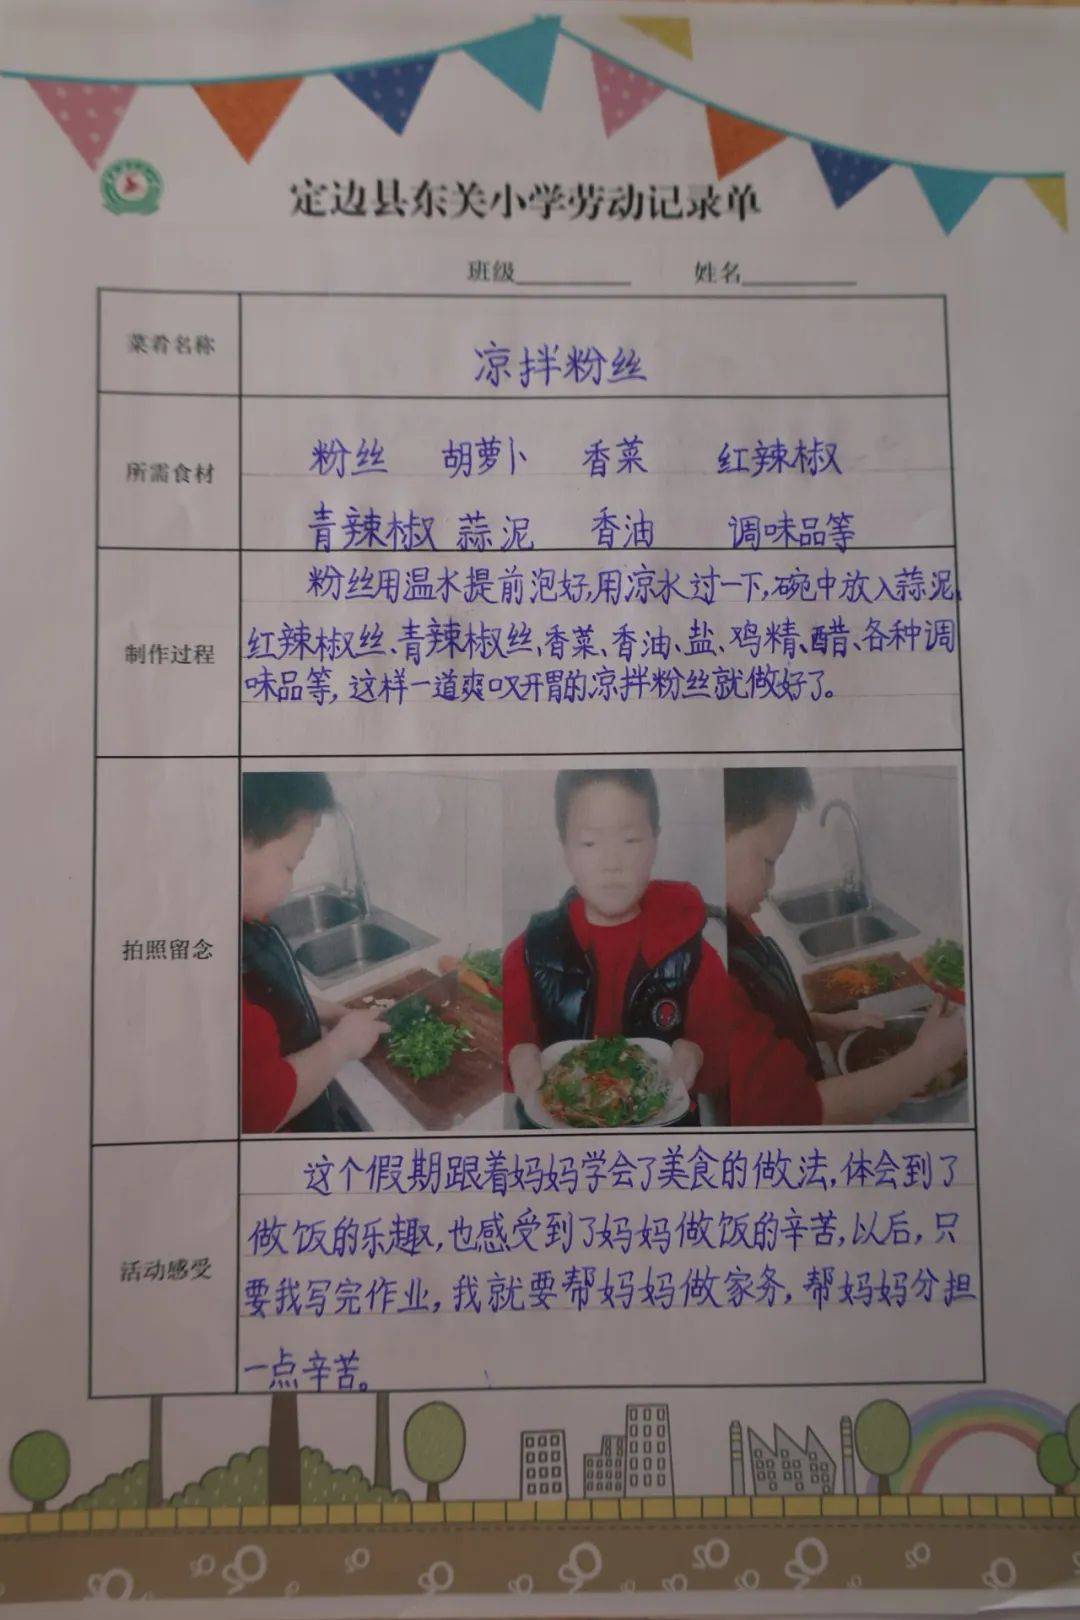 定边县东关小学劳动记录单
班级 姓名
菜肴名称
凉拌粉丝
所需食材
粉丝 胡萝卜 香菜 红辣椒
青辣椒 蒜泥 香油 调味品等
制作过程
粉丝用温水提前泡好,用凉水过一下,碗中放入蒜泥,
红辣椒丝、青辣椒丝、香菜、香油、盐、鸡精、醋、各种调
味品等,这样一道爽口又开胃的凉拌粉丝就做好了。
拍照留念
活动感受
这个假期跟着妈妈学会了美食的做法,体会到了
做饭的乐趣,也感受到了妈妈做饭的辛苦,以后,只
要我写完作业,我就要帮妈妈做家务,帮妈妈分担
一点辛苦。